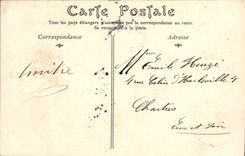 Carte Postale
Tous les pays étrangers n'acceptent pas la correspondance au recto.
Se renseigner à la poste.
Correspondance
Adresse
Amitié
Emile
4 rue Colin d'Harleville 4
Chartres
Eure et Loir